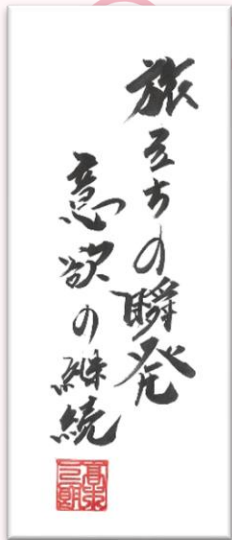 旅立ちの瞬発
意欲の継続